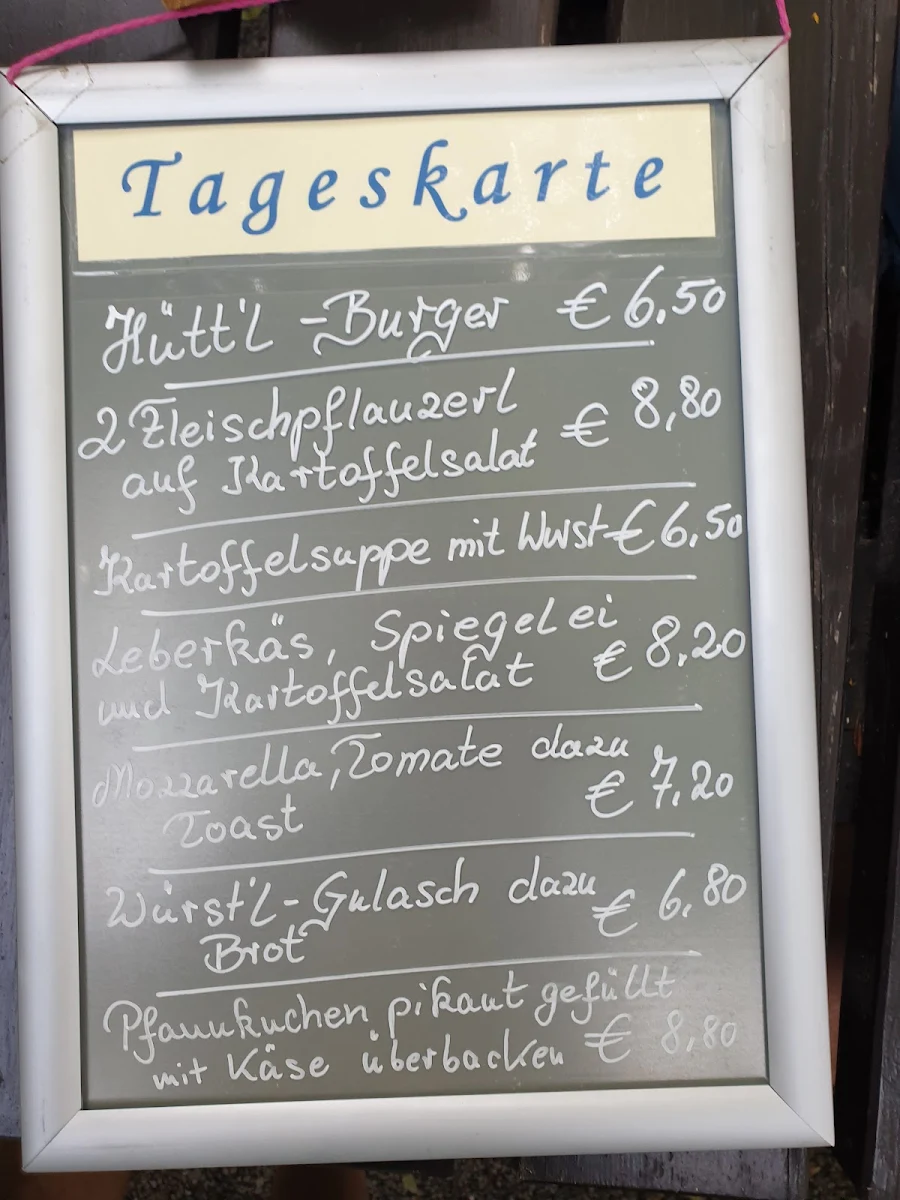 Tageskarte
Hütt'l - Burger € 6.50
2 Fleischpflanzerl
auf Kartoffelsalat € 8,80
Kartoffelsuppe mit Wurst € 6,50
Leberkäs, Spiegelei
und Kartoffelsalat € 8,20
Mozzarella, Tomate dazu
Toast € 7,20
Würst'l - Gulasch dazu
Brot € 6,80
Pfannkuchen pikant gefüllt
mit Käse überbacken € 8,80